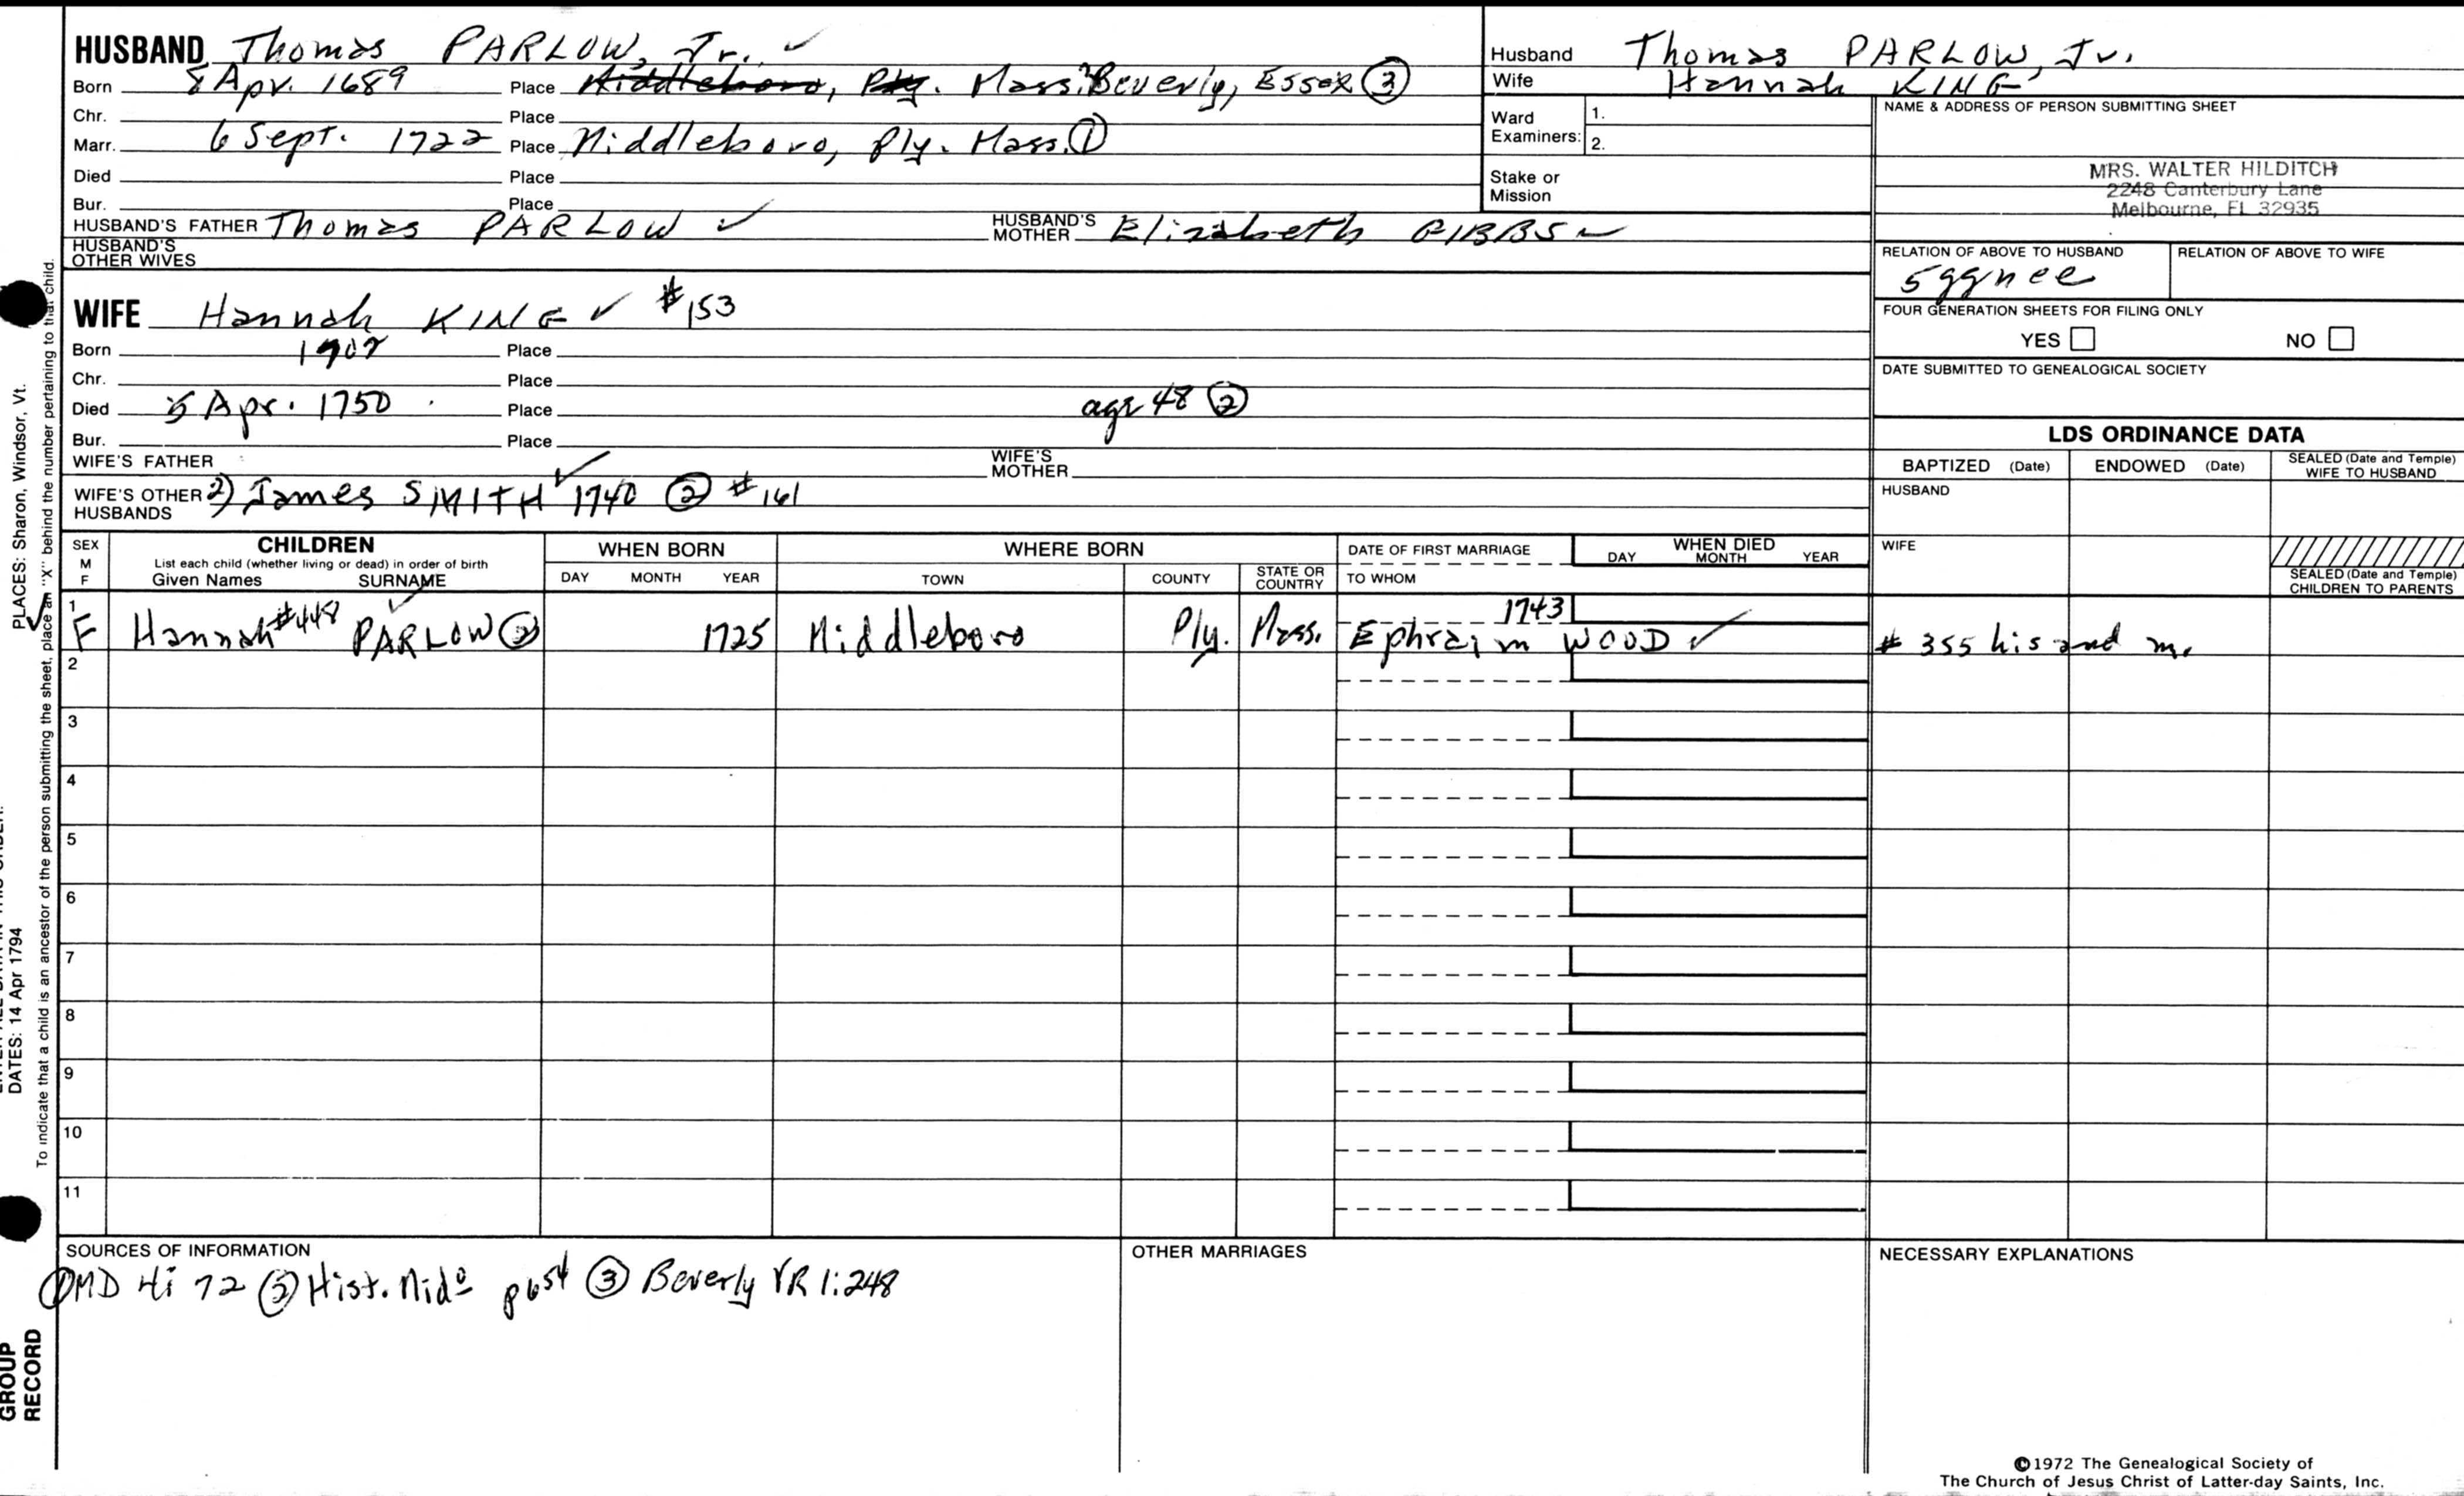 HUSBAND Thomas PARLOW, Jr. ✓
Born 8 Apr. 1689 Place Middleboro, Ply. Mass. Beverly, Essex ③
Chr. Place
Marr. 6 Sept. 1722 Place Middleboro, Ply. Mass. ①
Died Place
Bur. Place
HUSBAND'S FATHER Thomas PARLOW ✓ HUSBAND'S MOTHER Elizabeth GIBBS
HUSBAND'S OTHER WIVES
Husband Thomas PARLOW, Jr.
Wife Hannah KING
Ward Examiners: 1.
2.
Stake or Mission
NAME & ADDRESS OF PERSON SUBMITTING SHEET
MRS. WALTER HILDITCH
2248 Canterbury Lane
Melbourne, FL 32935
RELATION OF ABOVE TO HUSBAND RELATION OF ABOVE TO WIFE
5ggnee
FOUR GENERATION SHEETS FOR FILING ONLY
YES NO
DATE SUBMITTED TO GENEALOGICAL SOCIETY
WIFE Hannah KING ✓ #153
Born 1702 Place
Chr. Place
Died 5 Apr. 1750 Place age 48 ②
Bur. Place
WIFE'S FATHER WIFE'S MOTHER
WIFE'S OTHER HUSBANDS 2) James SMITH ✓ 1740 ② #161
LDS ORDINANCE DATA
BAPTIZED (Date) ENDOWED (Date) SEALED (Date and Temple) WIFE TO HUSBAND
HUSBAND
WIFE
SEALED (Date and Temple) CHILDREN TO PARENTS
SEX M F
CHILDREN
List each child (whether living or dead) in order of birth
Given Names SURNAME
WHEN BORN
DAY MONTH YEAR
WHERE BORN
TOWN COUNTY STATE OR COUNTRY
DATE OF FIRST MARRIAGE
TO WHOM
WHEN DIED
DAY MONTH YEAR
1 F Hannah #448 PARLOW ② 1725 Middleboro Ply. Mass. 1743
Ephraim WOOD ✓ # 355 his 2nd m.
2
3
4
5
6
7
8
9
10
11
SOURCES OF INFORMATION
① MD 72 ② Hist. Mido ③ Beverly VR 1:248
OTHER MARRIAGES
NECESSARY EXPLANATIONS
©1972 The Genealogical Society of
The Church of Jesus Christ of Latter-day Saints, Inc.
PLACES: Sharon, Windsor, Vt.
DATES: 14 Apr 1794
To indicate that a child is an ancestor of the person submitting the sheet, place an "X" behind the number pertaining to that child.
GROUP
RECORD